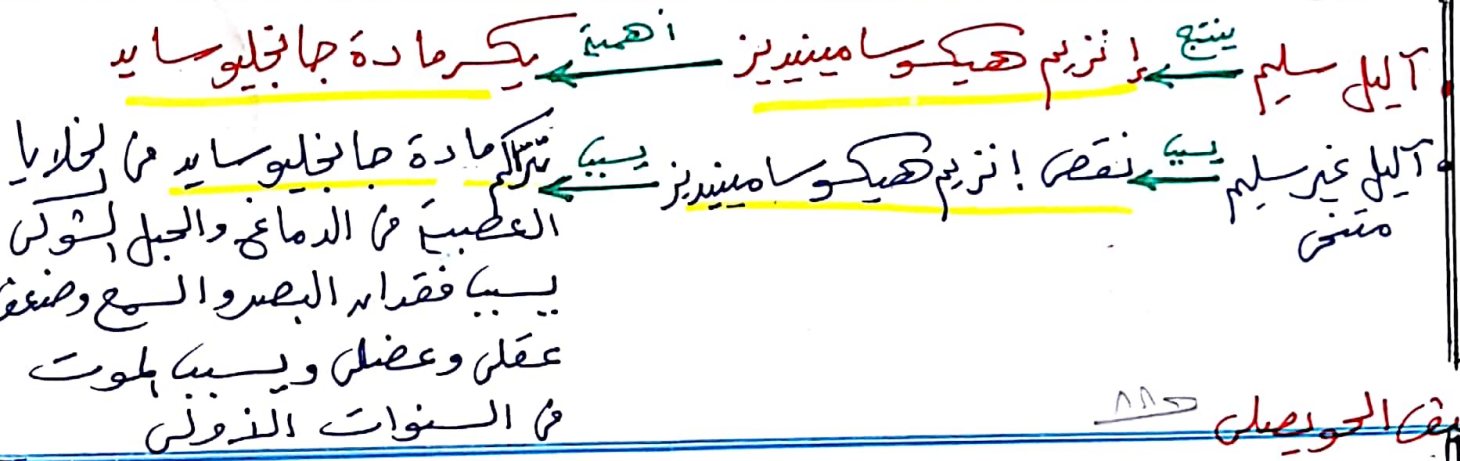 . آليل سليم ينتج إنزيم هيكسوسامينيديز أهمية يكسر مادة جانجليوسايد
. آليل غير سليم يسبب نقص إنزيم هيكسوسامينيديز يسبب تتراكم مادة جانجليوسايد في الخلايا
متنحي
العصبية في الدماغ والحبل الشوكي
يسبب فقدان البصر والسمع وضعف
عقلي وعضلي ويسبب الموت
في السنوات الأولى
الحويصلي